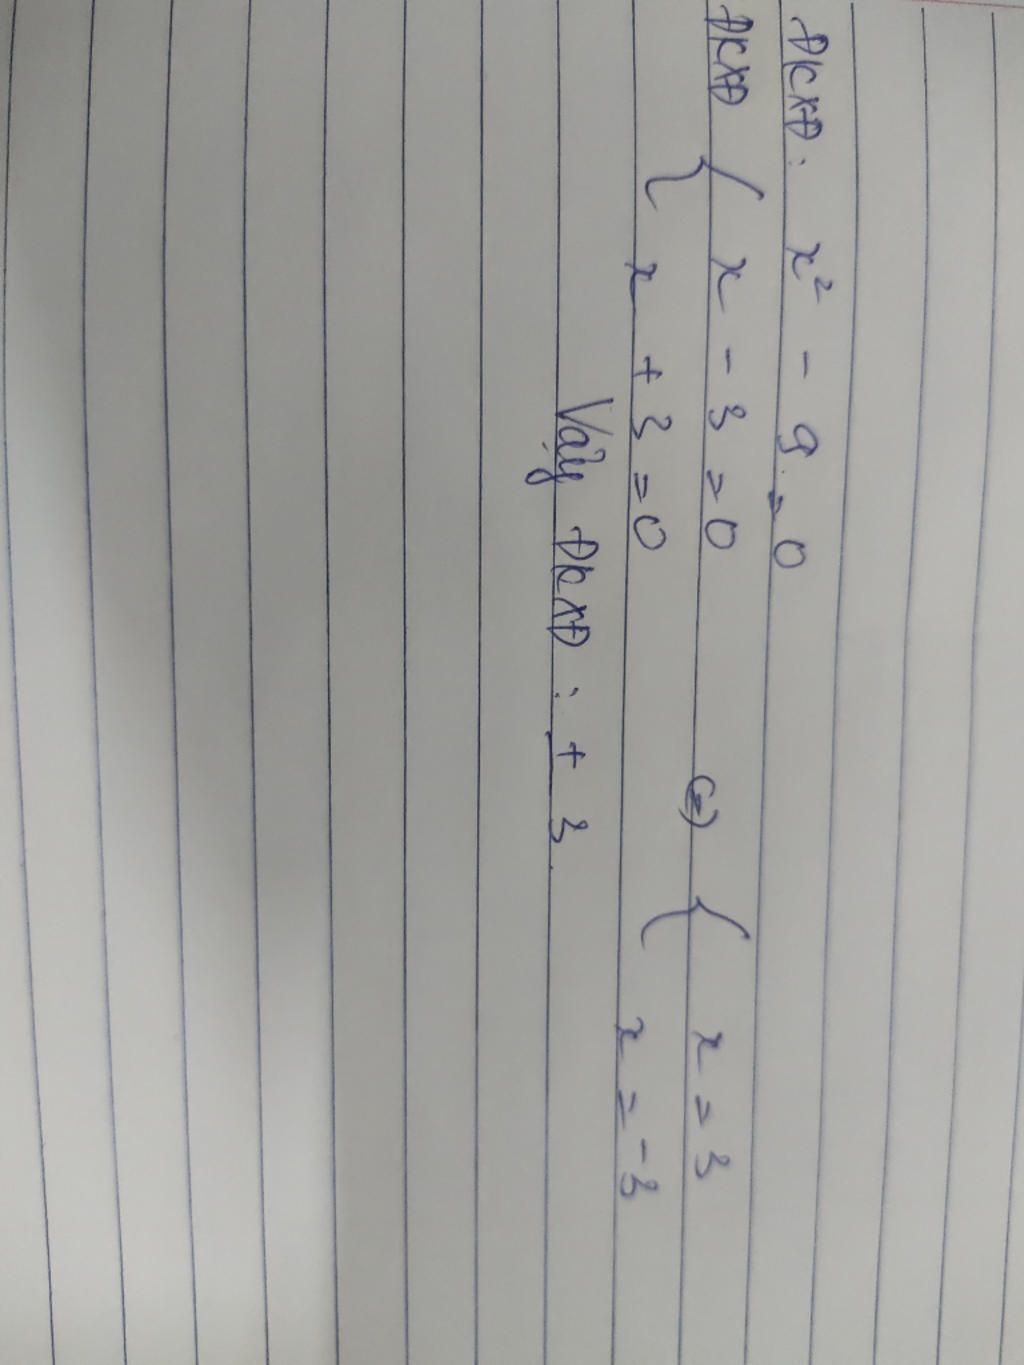 ĐKXĐ: x² - 9 = 0
ĐKXĐ { x - 3 = 0 (=) { x = 3
x + 3 = 0 x = -3
Vậy ĐKXĐ : + 3.